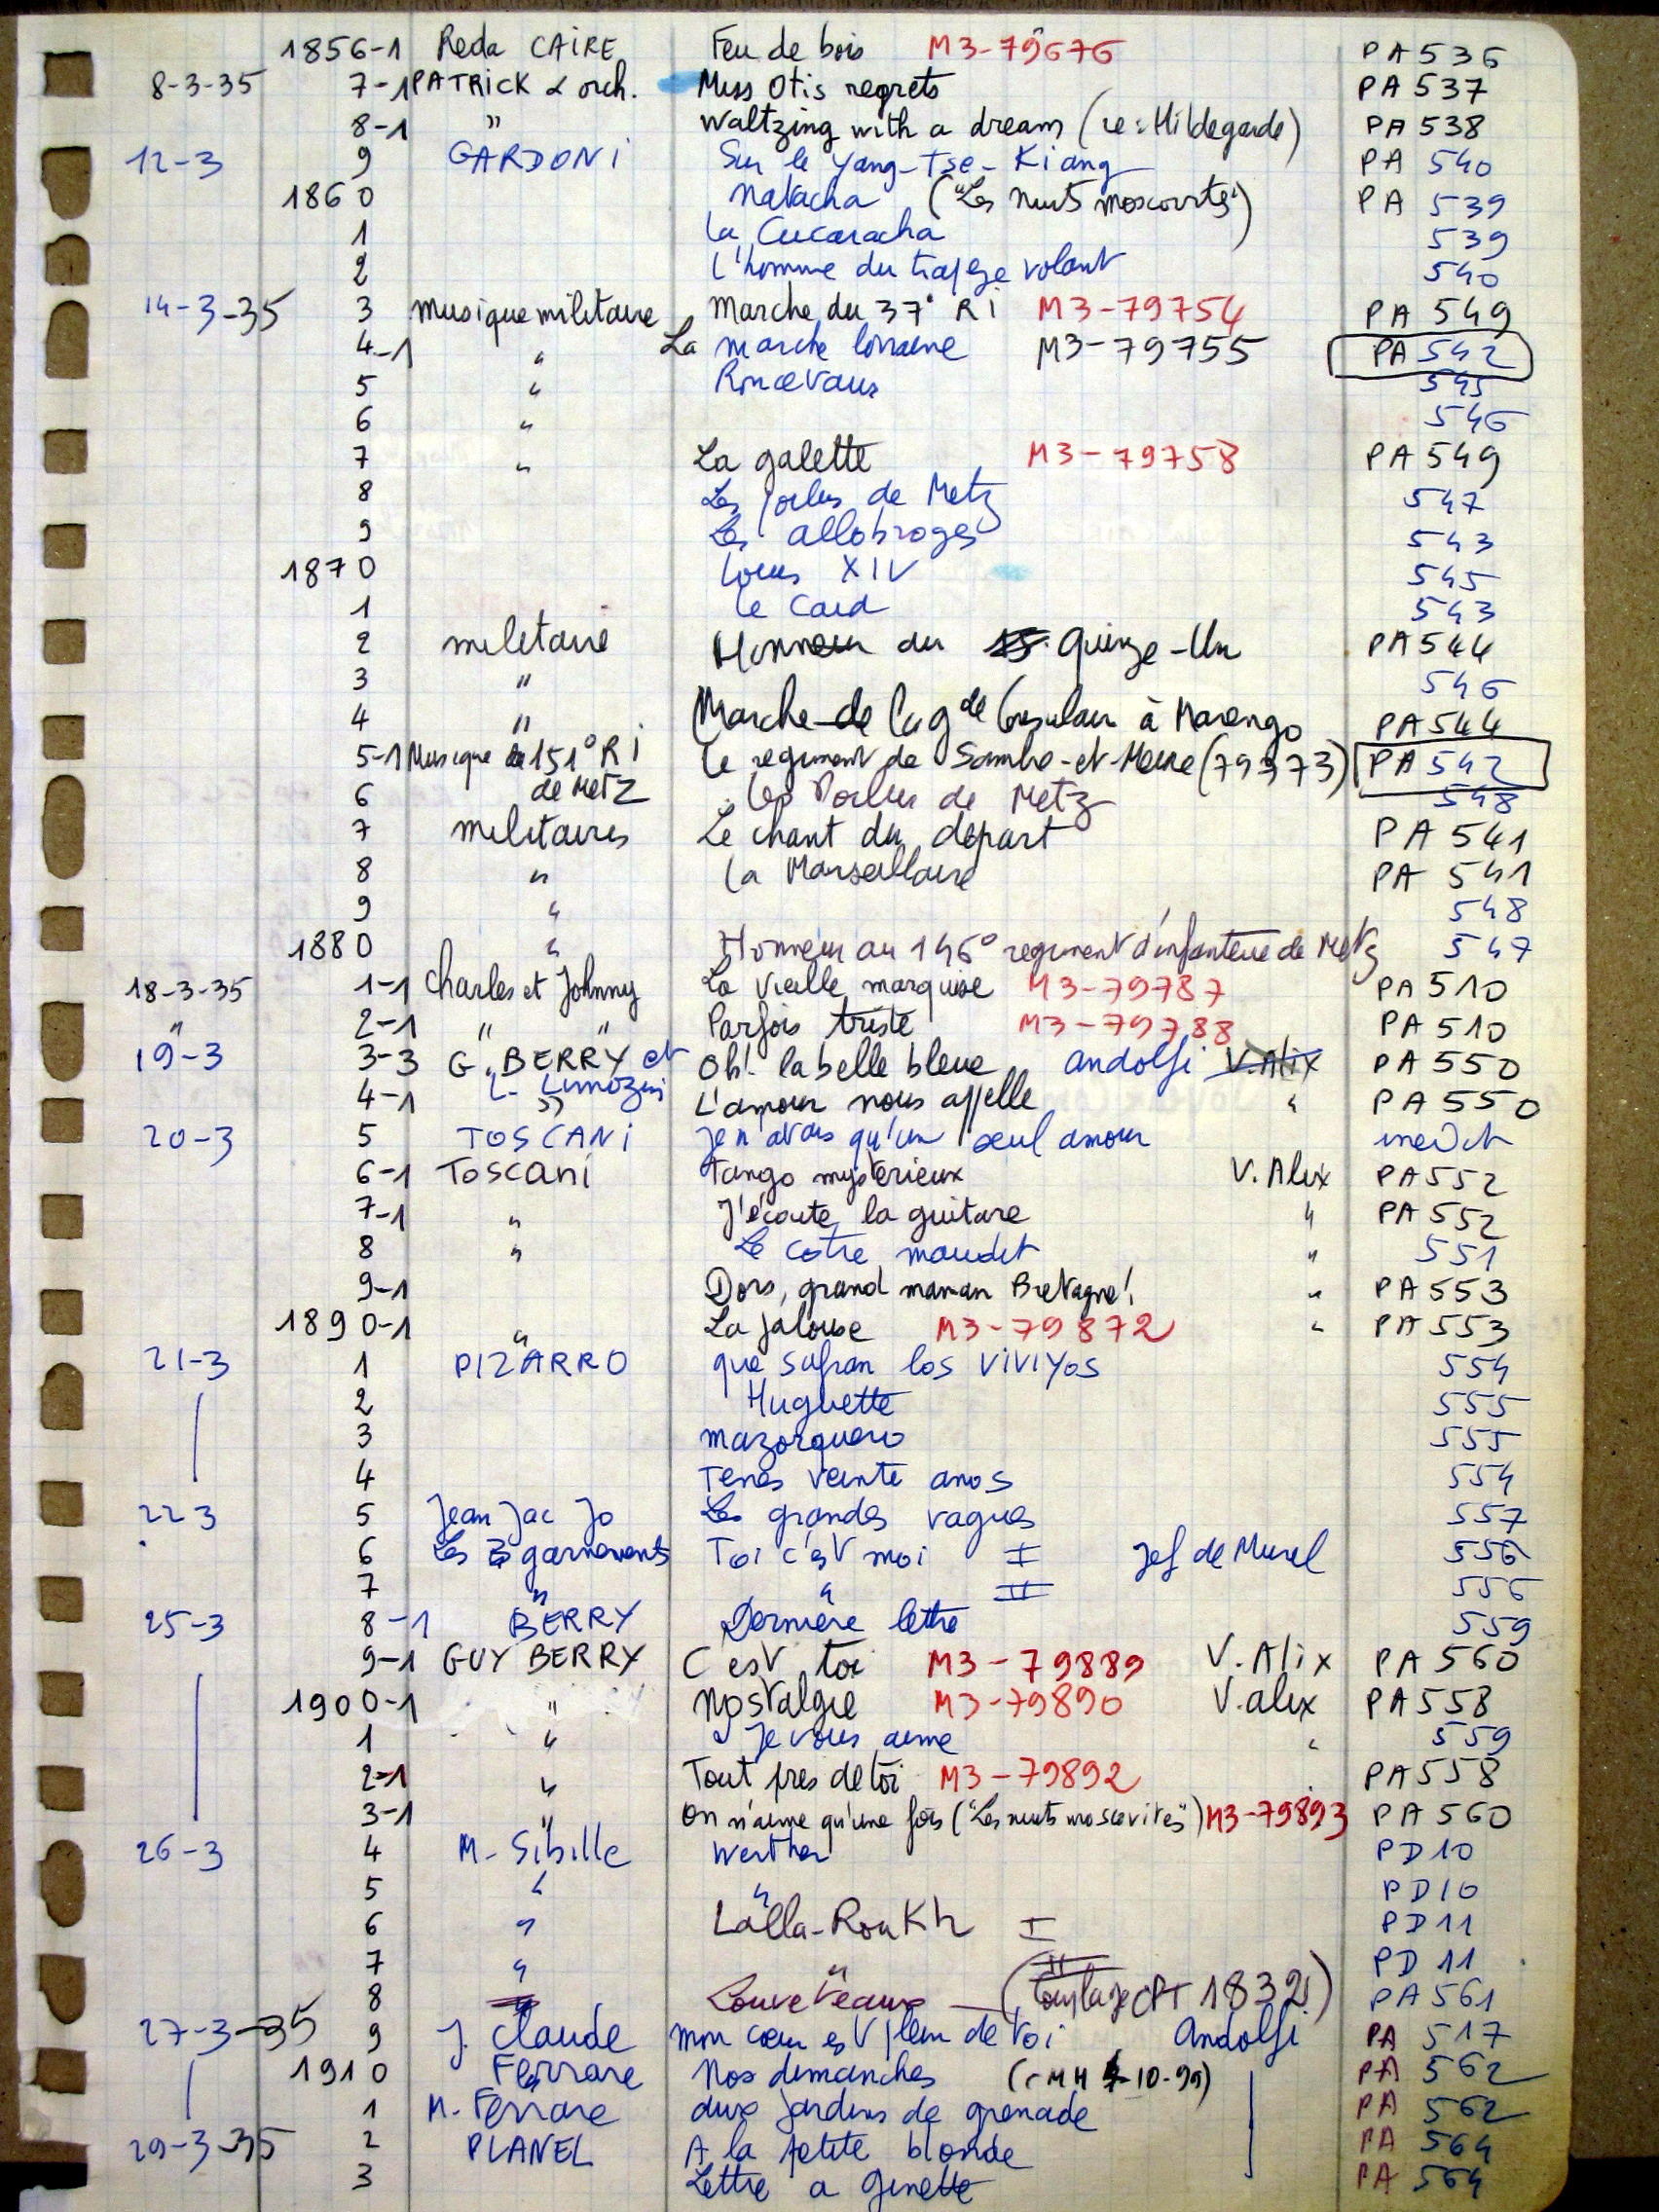 1856-1 Reda CAIRE Feu de bois M3-79676 PA536
8-3-35 7-1 PATRICK & orch. Miss Otis regrets PA537
8-1 " Waltzing with a dream (re: Hildegarde) PA538
12-3 9 GARDONI Sur le Yang-Tse-Kiang PA 540
1860 Natacha ("Les nuits moscovites") PA 539
1 La Cucaracha 539
2 L'homme du trapeze volant 540
14-3-35 3 musique militaire Marche du 37° RI M3-79754 PA549
4-1 " La marche lorraine M3-79755 PA542
5 " Roncevaux 545
6 " 546
7 " La galette M3-79758 PA549
8 Les poilus de Metz 547
9 Les allobroges 543
1870 Louis XIV 545
1 Le Caid 543
2 militaire Honneur au 15 Quinze-Un PA544
3 " 546
4 " Marche de la gde Consulaire à Marengo PA544
5-1 Musique du 151° RI Le regiment de Sambre-et-Meuse (79373) PA542
6 de Metz Les Poilus de Metz 548
7 militaires Le chant du départ PA541
8 " La Marseillaise PA 541
9 " 548
1880 " Honneur au 146° regiment d'infanterie de Metz 547
18-3-35 1-1 Charles et Johnny La vieille marquise M3-79787 PA510
" 2-1 " " Parfois triste M3-79788 PA510
19-3 3-3 G. BERRY et Oh! la belle bleue andolfi V.Alix PA550
4-1 L. Limozin " L'amour nous appelle " PA550
20-3 5 TOSCANI Je n'avais qu'un seul amour inedit
6-1 Toscani Tango mysterieux V. Alix PA552
7-1 " J'écoute la guitare " PA552
8 " Le cotre maudit " 551
9-1 Dors, grand maman Bretagne! " PA553
1890-1 " La jalouse M3-79872 " PA553
21-3 1 PIZARRO que sufran los ViViYos 554
2 Huguette 555
3 mazorquero 555
4 Tenes veinte anos 554
22 3 5 Jean Jac Jo Les grandes vagues 557
6 Les 3 garnements Toi c'est moi I Jef de Murel 556
7 " " II 556
25-3 8-1 BERRY Derniere lettre 559
9-1 GUY BERRY C'est toi M3-79889 V. Alix PA560
1900-1 " Nostalgie M3-79890 V. alix PA558
1 " Je vous aime " 559
2-1 " Tout pres de toi M3-79892 PA558
3-1 " On n'aime qu'une fois ("Les nuits moscovites") M3-79893 PA560
26-3 4 M. Sibille Werther PD10
5 " " PD10
6 " Lalla-Roukh I PD11
7 " " II PD11
8 Louveteaux (CPT 1832) PA561
27-3-35 9 J. Claude mon cœur est plein de toi Andolfi PA 517
1910 Ferrare Nos dimanches PA 562
1 M. Ferrare aux jardins de grenade PA 562
29-3-35 2 PLANEL A la petite blonde PA 564
3 Lettre a Ginette PA 564